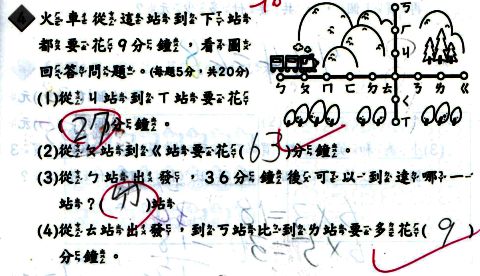 4 火車從這站到下一站
都要花9分鐘，看圖
回答問題。(每題5分，共20分)
(1)從ㄐ站到ㄒ站要花
(27)分鐘。
(2)從ㄆ站到ㄍ站要花(63)分鐘。
(3)從ㄅ站出發，36分鐘後可以到達哪一
站？(ㄉ)站
(4)從ㄊ站出發，到ㄎ站比到ㄌ站要多花(9)
分鐘。
ㄎ
ㄏ
ㄐ
ㄅ ㄆ ㄇ ㄈ ㄉ ㄊ ㄋ ㄌ ㄍ
ㄑ
ㄒ